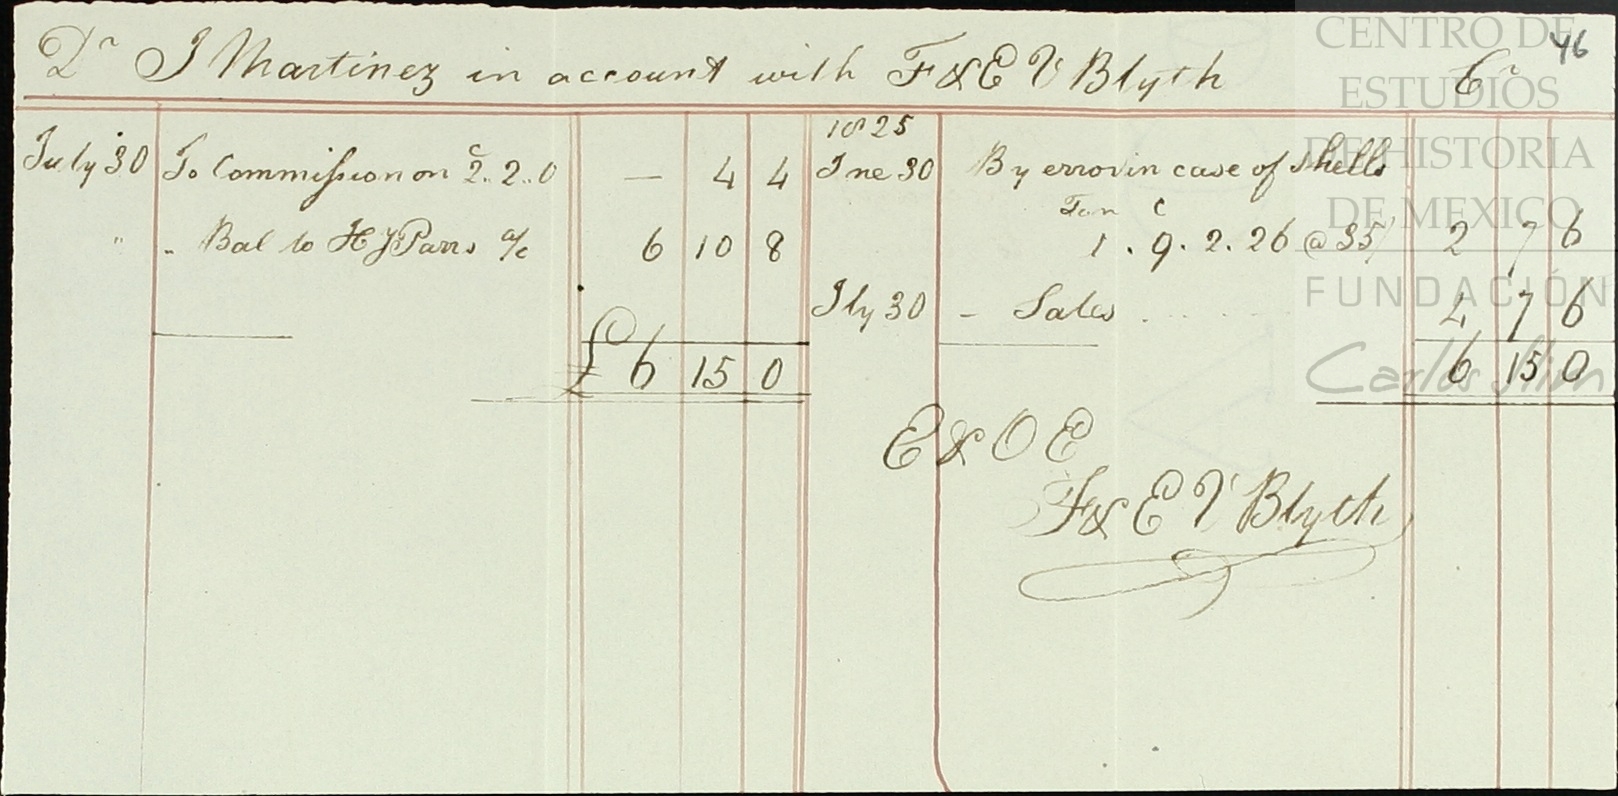 46
Dr J Martinez in account with F & E V Blyth Cr
July 30 To Commission on 2.. 2.. 0 — 4 4
" " Bal to H J Parrs a/c 6 10 8
£ 6 15 0
1825
Jne 30 By error in case of Shells
Ton C
1 . 9 . 2 . 26 @ 35/ 2 7 6
Jly 30 - Sales 4 7 6
6 15 0
E & O E
F & E V Blyth
CENTRO DE
ESTUDIOS
DE HISTORIA
DE MEXICO
FUNDACIÓN
Carlos Slim